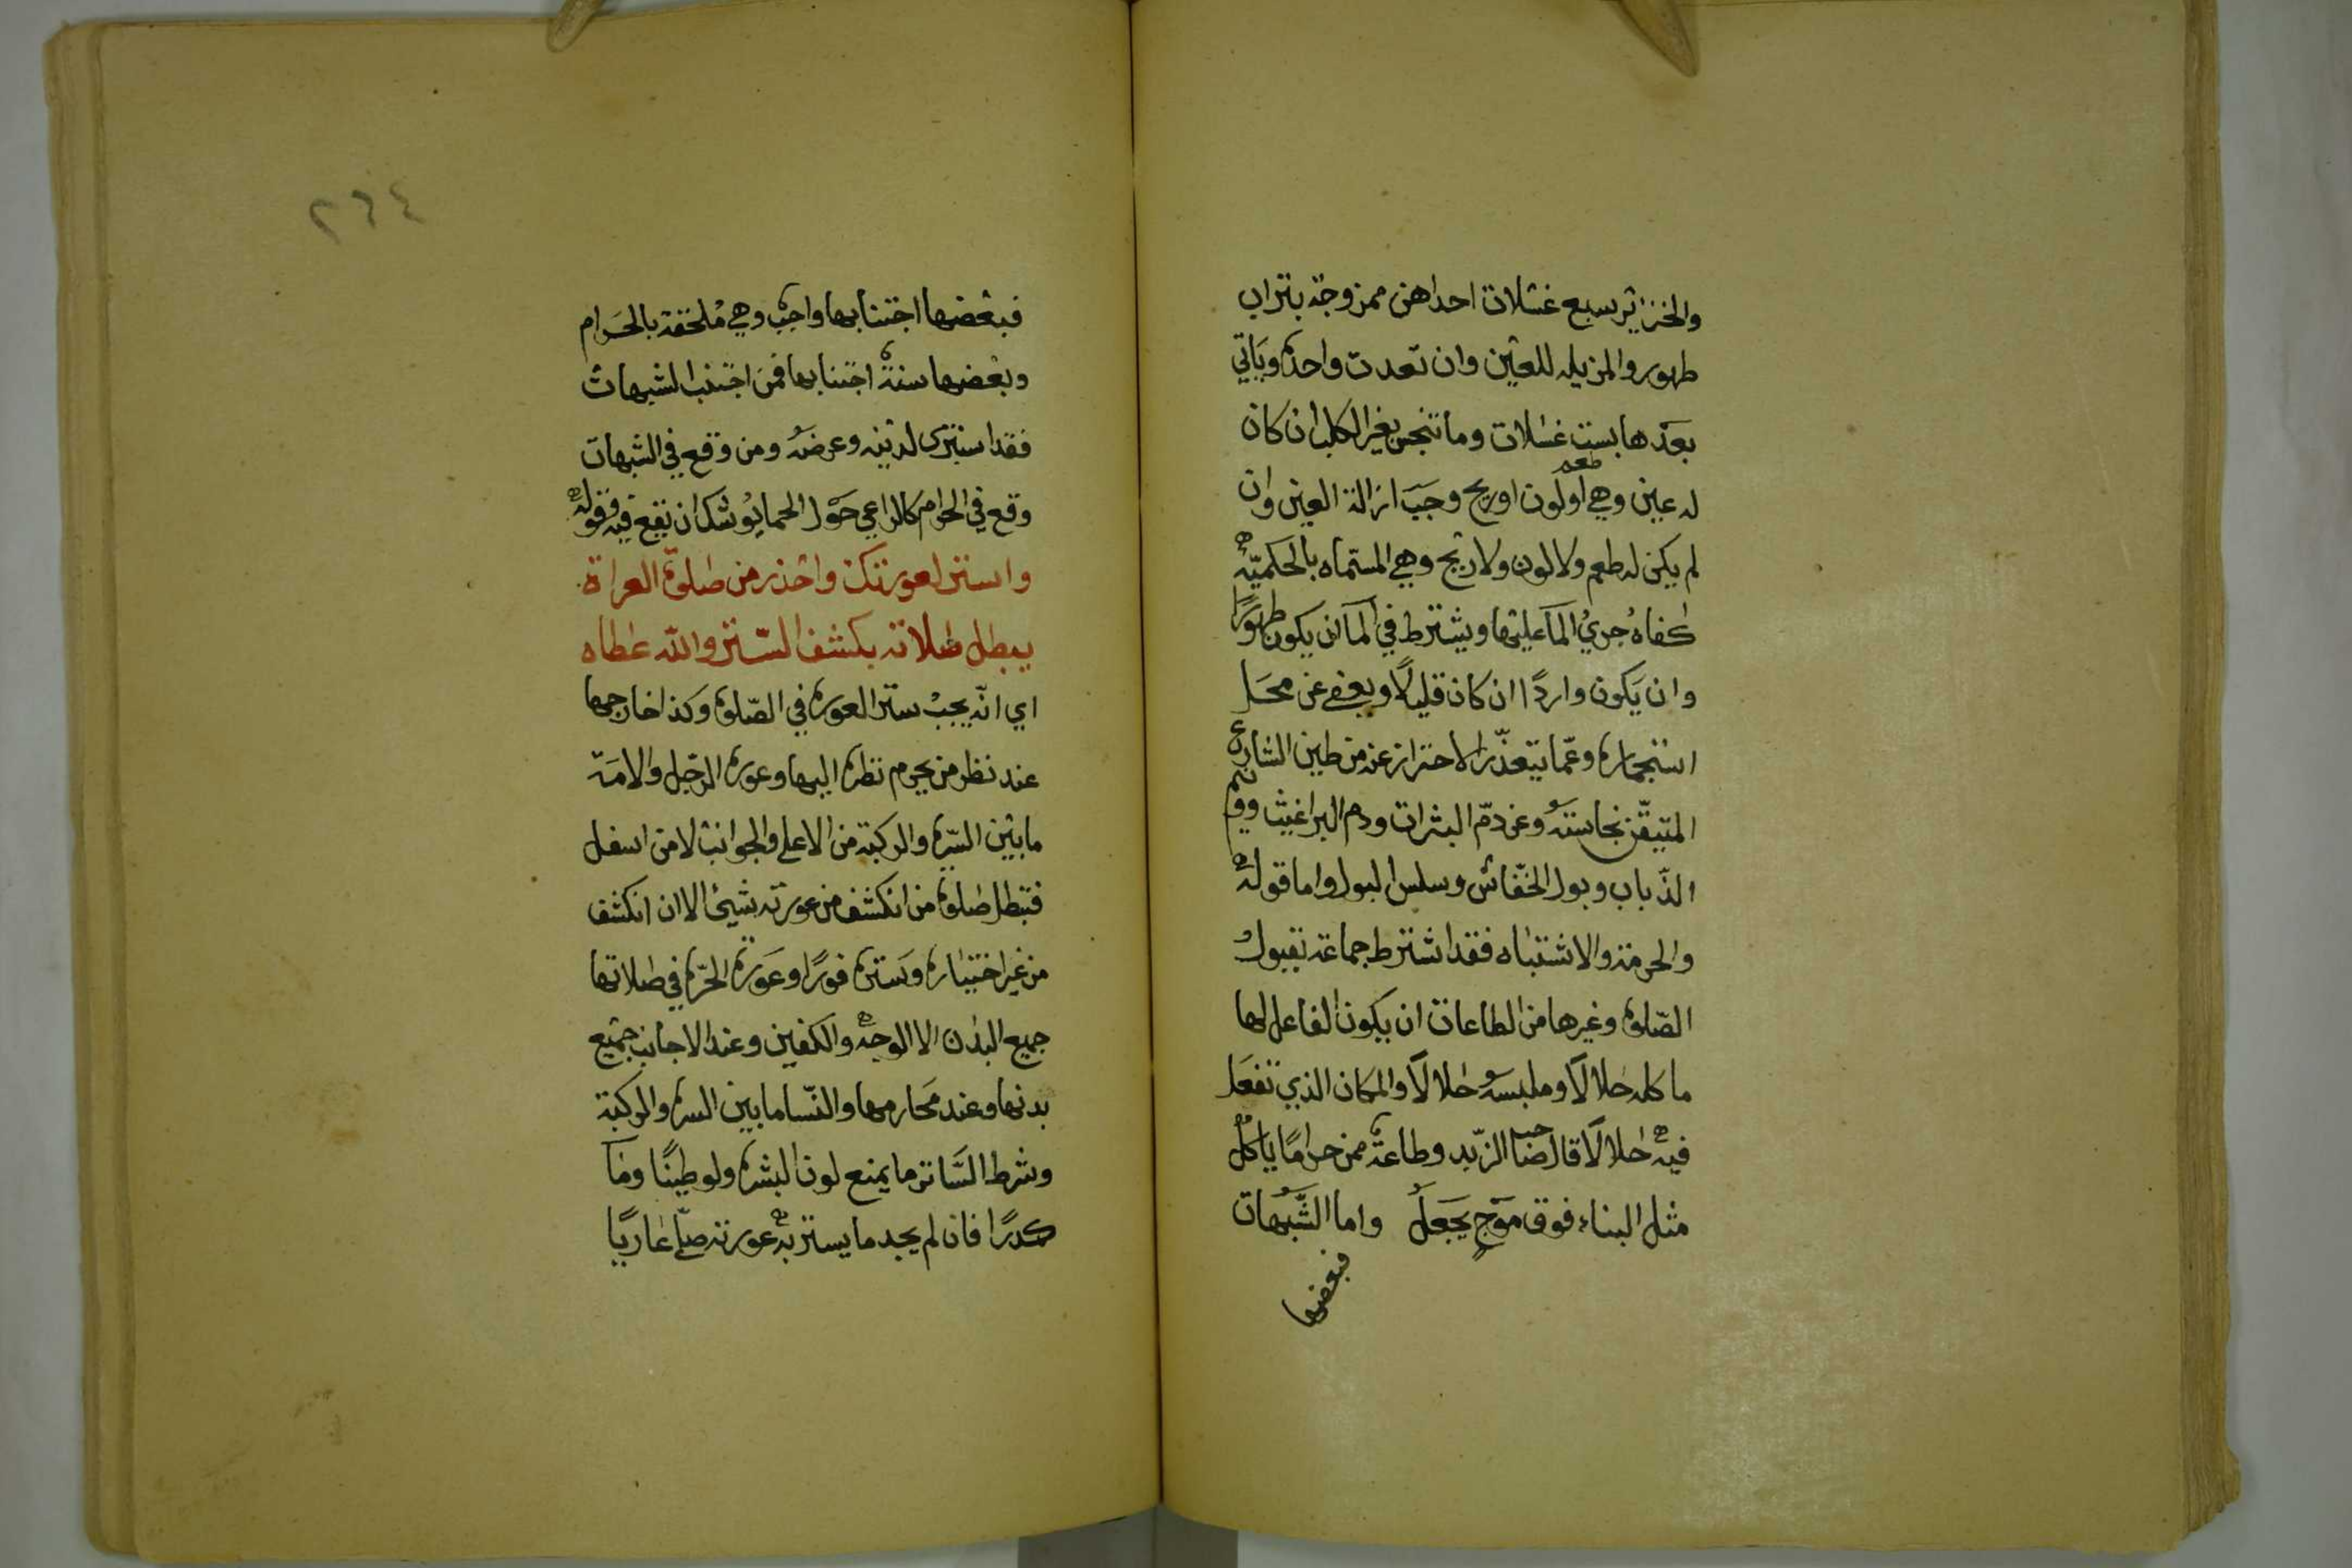 والخنزاير سبع غسلات احداهن ممزوجة بتراب
طهور والمزيله للعين وان تعدت واحدة وياتي
بعدها بست غسلات وما تنجس بغير الكلب ان كان
له عين وهي طعم او لون او ريح وجب ازالة العين وان
لم يكن له طعم ولا لون ولا ريح وهي المسماه بالحكميّة
كفاهُ جريُ المآ عليها ويشترط في المآ ان يكون طهورًا
وان يكون واردًا ان كان قليلًا ويعفى عن محل
استنجماره وعمّا يتعذّر الاحتراز عنه من طين الشارع
المتيقّن نجاسته وعن دمّ البثرات ودم البراغيث وونيم
الذّباب وبول الخفّاش وسلس البول واما قوله
والحرمة والاشتباه فقد اشترط جماعة لقبول
الصّلوة وغيرها من الطاعات ان يكون الفاعل لها
ماكله حلالًا وملبسه حلالًا والمكان الذي تفعل
فيه حلالًا قال صاحب الزّبد وطاعة ممن حرامًا ياكلُ
مثل البناء فوق موجٍ يجعلُ واما الشّبهات
فبعضها
٢٦٤
فبعضها اجتنابها واجب وهي ملحقة بالحرام
وبعضها سنة اجتنابها فمن اجتنب الشبهات
فقد استبرى لدينه وعرضه ومن وقع في الشبهات
وقع في الحرام كالراعي حول الحما يوشك ان يقع فيه وقوله
واستر لعورتك واحذر من صلوة العراة
يبطل صلاته بكشف الستر والله عطاه
اي انّه يجب ستر العورة في الصّلوة وكذا خارجها
عند نظر من يحرم نظره اليها وعورة الرّجل والامة
ما بين السّرة والركبة من الاعلى والجوانب لا من اسفل
فتبطل صلوة من انكشف من عورته شيئ الا ان انكشف
من غير اختياره وستره فورًا وعورة الحرّة في صلاتها
جميع البدن الا الوجه والكفين وعند الاجانب جميع
بدنها وعند محارمها والنّسا ما بين السره والركبة
وشرط السّاتر ما يمنع لون البشره ولو طينًا ومآ
كدرًا فان لم يجد ما يستر به عورته صلّى عاريًا